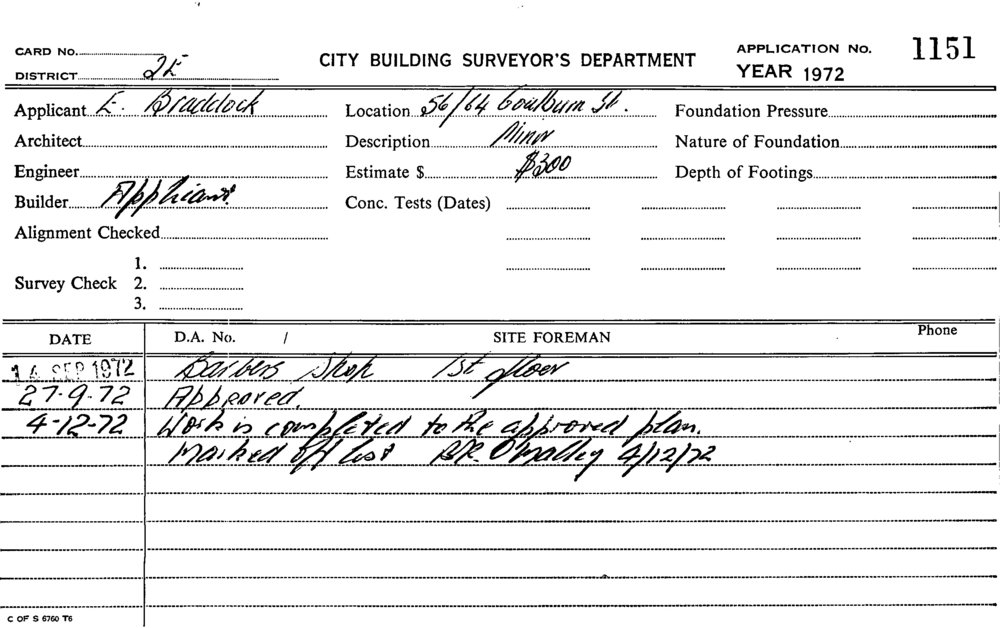 CARD No. CITY BUILDING SURVEYOR'S DEPARTMENT APPLICATION No. 1151
DISTRICT 2E YEAR 1972
Applicant E. Braddock Location 56/64 Goulburn St. Foundation Pressure
Architect Description Minor Nature of Foundation
Engineer Estimate $ $300 Depth of Footings
Builder Applicant. Conc. Tests (Dates)
Alignment Checked
1.
Survey Check 2.
3.
DATE D.A. No. / SITE FOREMAN Phone
14 SEP 1972 Barbers Shop 1st floor
27.9.72 Approved.
4-12-72 Work is completed to the approved plan.
Marked off list O'Malley 4/12/72
C OF S 6760 T6